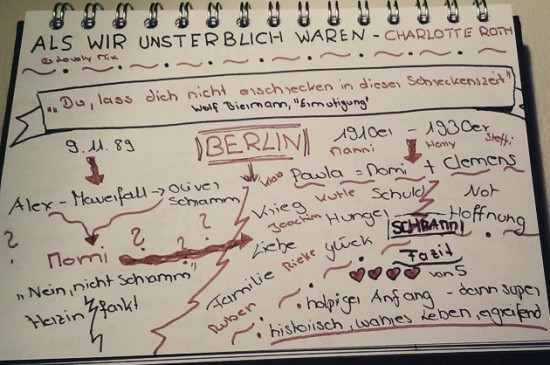 ALS WIR UNSTERBLICH WAREN - CHARLOTTE ROTH
"Du, lass dich nicht erschrecken in dieser Schreckenszeit"
Wolf Biermann, "Ermutigung"
9.11.89
BERLIN
1910er - 1930er
Nanni
Hamy
Steffi
Paula = Momi + Clemens
Alex - Mauerfall → Oliver Schramm
Krieg
Wurle
Schuld
Not
Joachim
Hunger
SCHRAMM
Hoffnung
? ? ? ?
Momi
Liebe
Rieke
Glück
Fazit
"Nein, nicht Schramm"
Familie
von 5
Herzinfarkt
Ruben
holpriger Anfang - dann super
historisch, wahres Leben, ergreifend